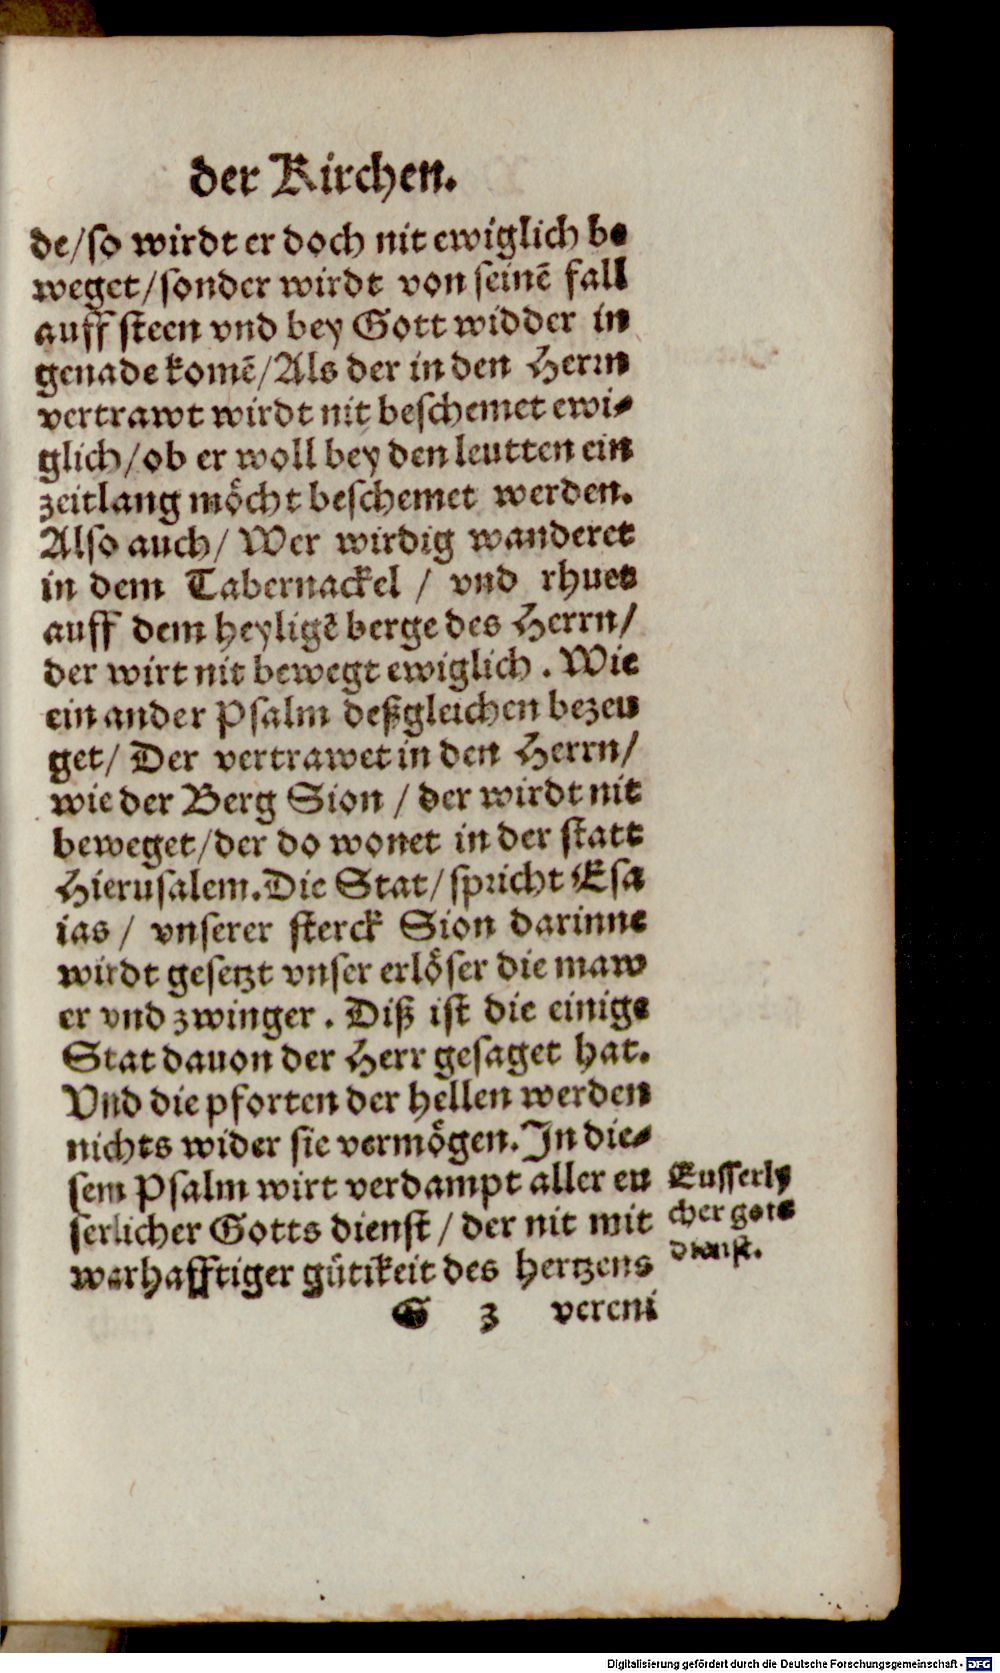 der Kirchen.
de/so wirdt er doch nit ewiglich be
weget/sonder wirdt von seinē fall
auff steen vnd bey Gott widder in
genade komē/Als der in den Herrn
vertrawt wirdt nit beschemet ewi⸗
glich/ob er woll bey den leutten ein
zeitlang möcht beschemet werden.
Also auch/ Wer wirdig wanderet
in dem Tabernackel / vnd rhuet
auff dem heyligē berge des Herrn/
der wirt nit bewegt ewiglich. Wie
ein ander Psalm deßgleichen bezeu
get/ Der vertrawet in den Herrn/
wie der Berg Sion / der wirdt nit
beweget/der do wonet in der statt
Hierusalem.Die Stat/spricht Esa
ias / vnserer sterck Sion darinne
wirdt gesetzt vnser erlöser die maw
er vnd zwinger. Diß ist die einige
Stat dauon der Herr gesaget hat.
Vnd die pforten der hellen werden
nichts wider sie vermögen.In die⸗
sem Psalm wirt verdampt aller eu
serlicher Gotts dienst / der nit mit
warhafftiger gütikeit des hertzens
G 3 vereni
Eusserly
cher gots
dienst.
Digitalisierung gefördert durch die Deutsche Forschungsgemeinschaft - DFG